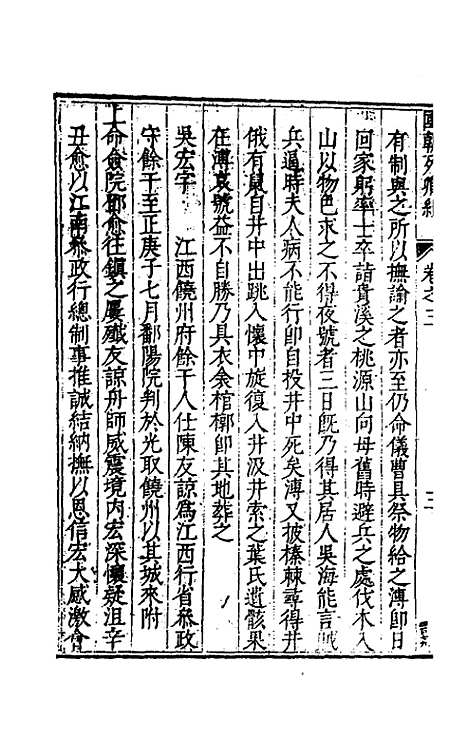 國朝列卿紀 卷之三 二
有制與之所以撫諭之者亦至仍命儀曹具祭物給之溥即日
回家躬率士卒詣貴溪之桃源山向母舊時避兵之處伐木入
山以物色求之不得夜號者三日既乃得其居人吳海能言賊
兵逼時夫人病不能行即自投井中死矣溥又披榛棘尋得井
俄有鼠自井中出跳入懷中旋復入井汲井索之葉氏遺骸果
在溥哀號益不自勝乃具衣衾棺槨即其地葬之
吳宏字 江西饒州府餘干人仕陳友諒為江西行省叅政
守餘干至正庚子七月鄱陽院判於光取饒州以其城來附
上命僉院鄧愈往鎮之屢殲友諒舟師威震境內宏深懷疑沮辛
丑愈以江南叅政行總制事推誠結納撫以恩信宏大感激會